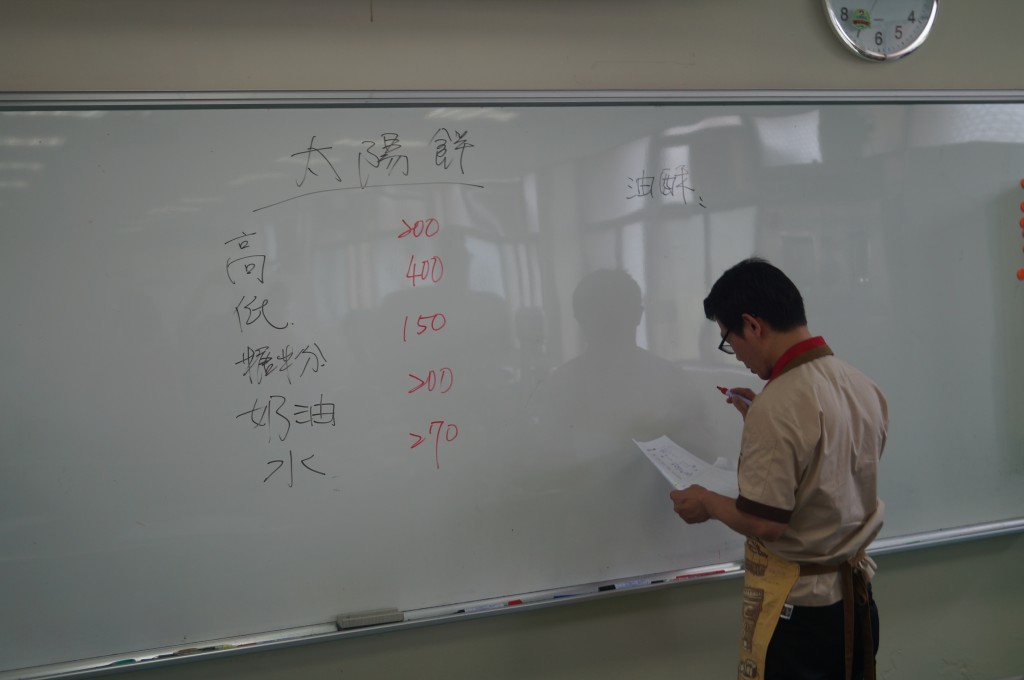 太陽餅
油酥
高 200
低 400
糖粉 150
奶油 200
水 270
8 7 6 5 4